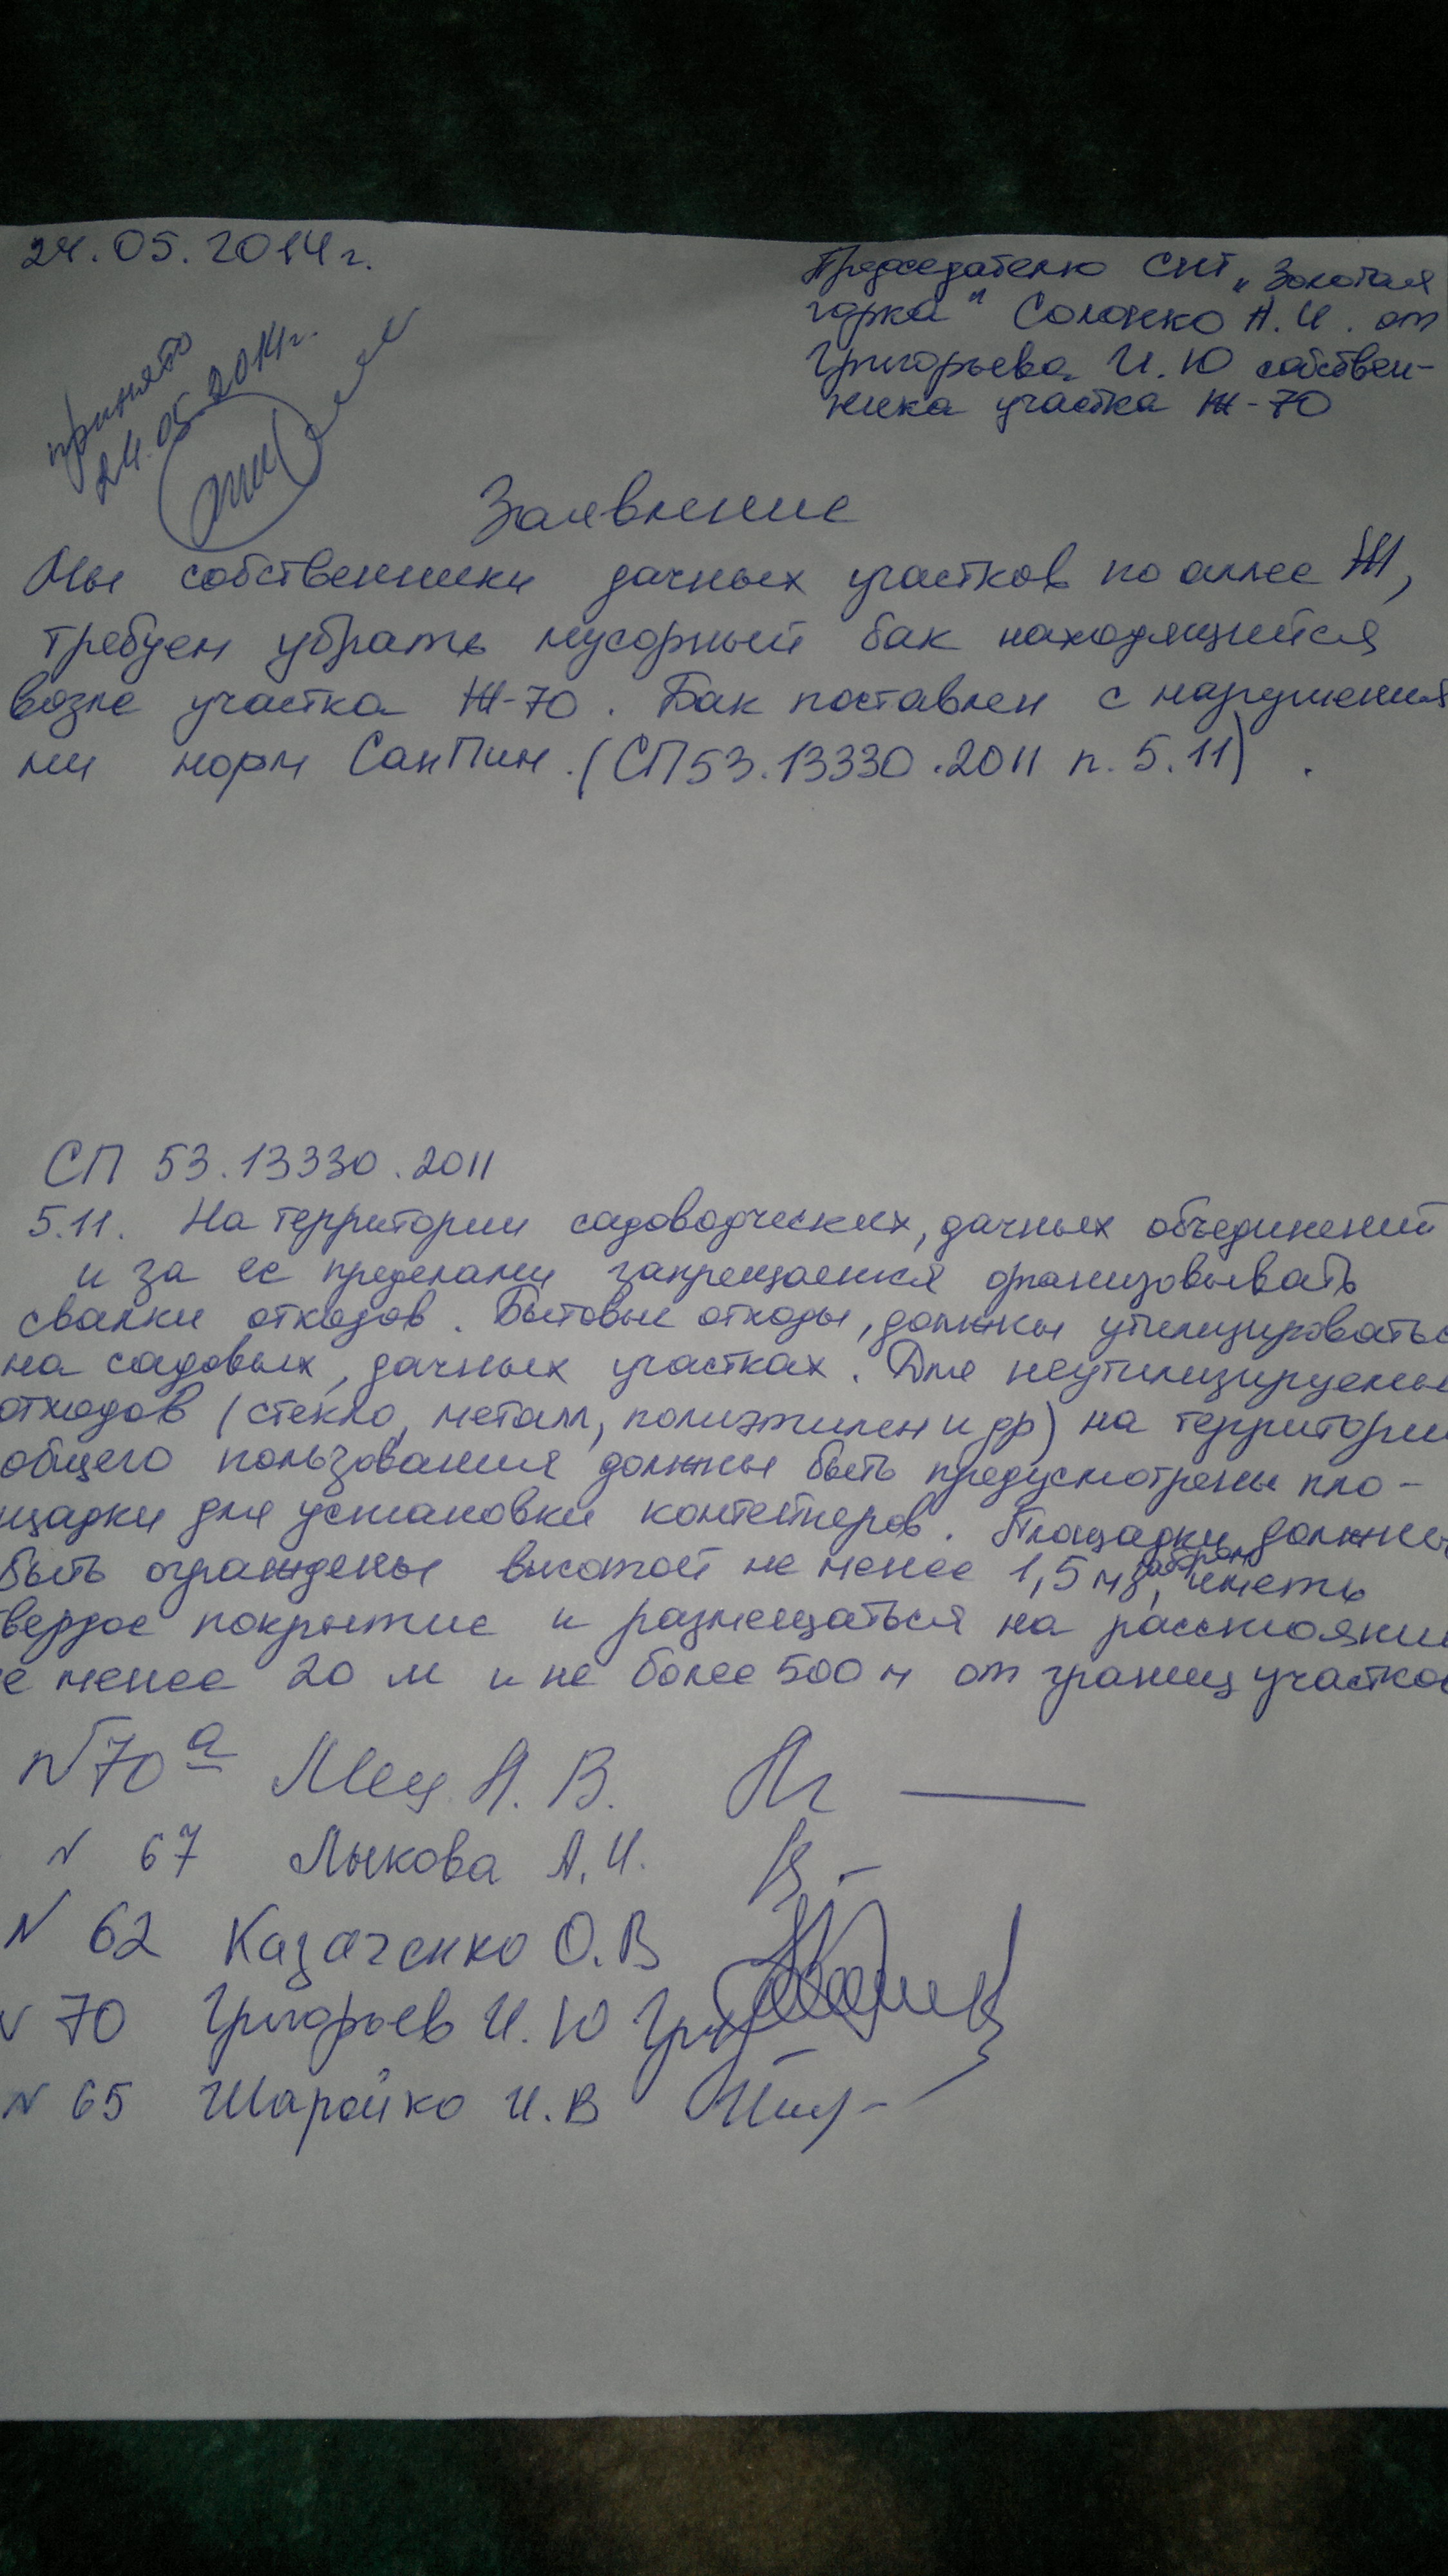 24.05.2014г.
Председателю СНТ „Золотая
горка" Солонко А.И. от
Григорьева И.Ю собствен-
ника участка Ж-70
принято
24.05.2014г.
Заявление
Мы собственники дачных участков по аллее Ж,
требуем убрать мусорный бак находящийся
возле участка Ж-70. Бак поставлен с нарушения
ми норм СанПин. (СП53.13330.2011 п. 5.11).
СП 53.13330.2011
5.11. На территории садоводческих, дачных объединений
и за ее пределами запрещается организовывать
свалки отходов. Бытовые отходы, должны утилизироватьс
на садовых, дачных участках. Для неутилизируемы
отходов (стекло, металл, полиэтилен и др) на территории
общего пользования должны быть предусмотрены пло-
щадки для установки контейнеров. Площадки должны
быть ограждены высотой не менее 1,5 м, иметь
вердое покрытие и размещаться на расстоянии
е менее 20 м и не более 500 м от границ участков
N 70а Мец А.В.
N 67 Лыкова А.И.
N 62 Казаченко О.В
N 70 Григорьев И.Ю
N 65 Шаройко И.В